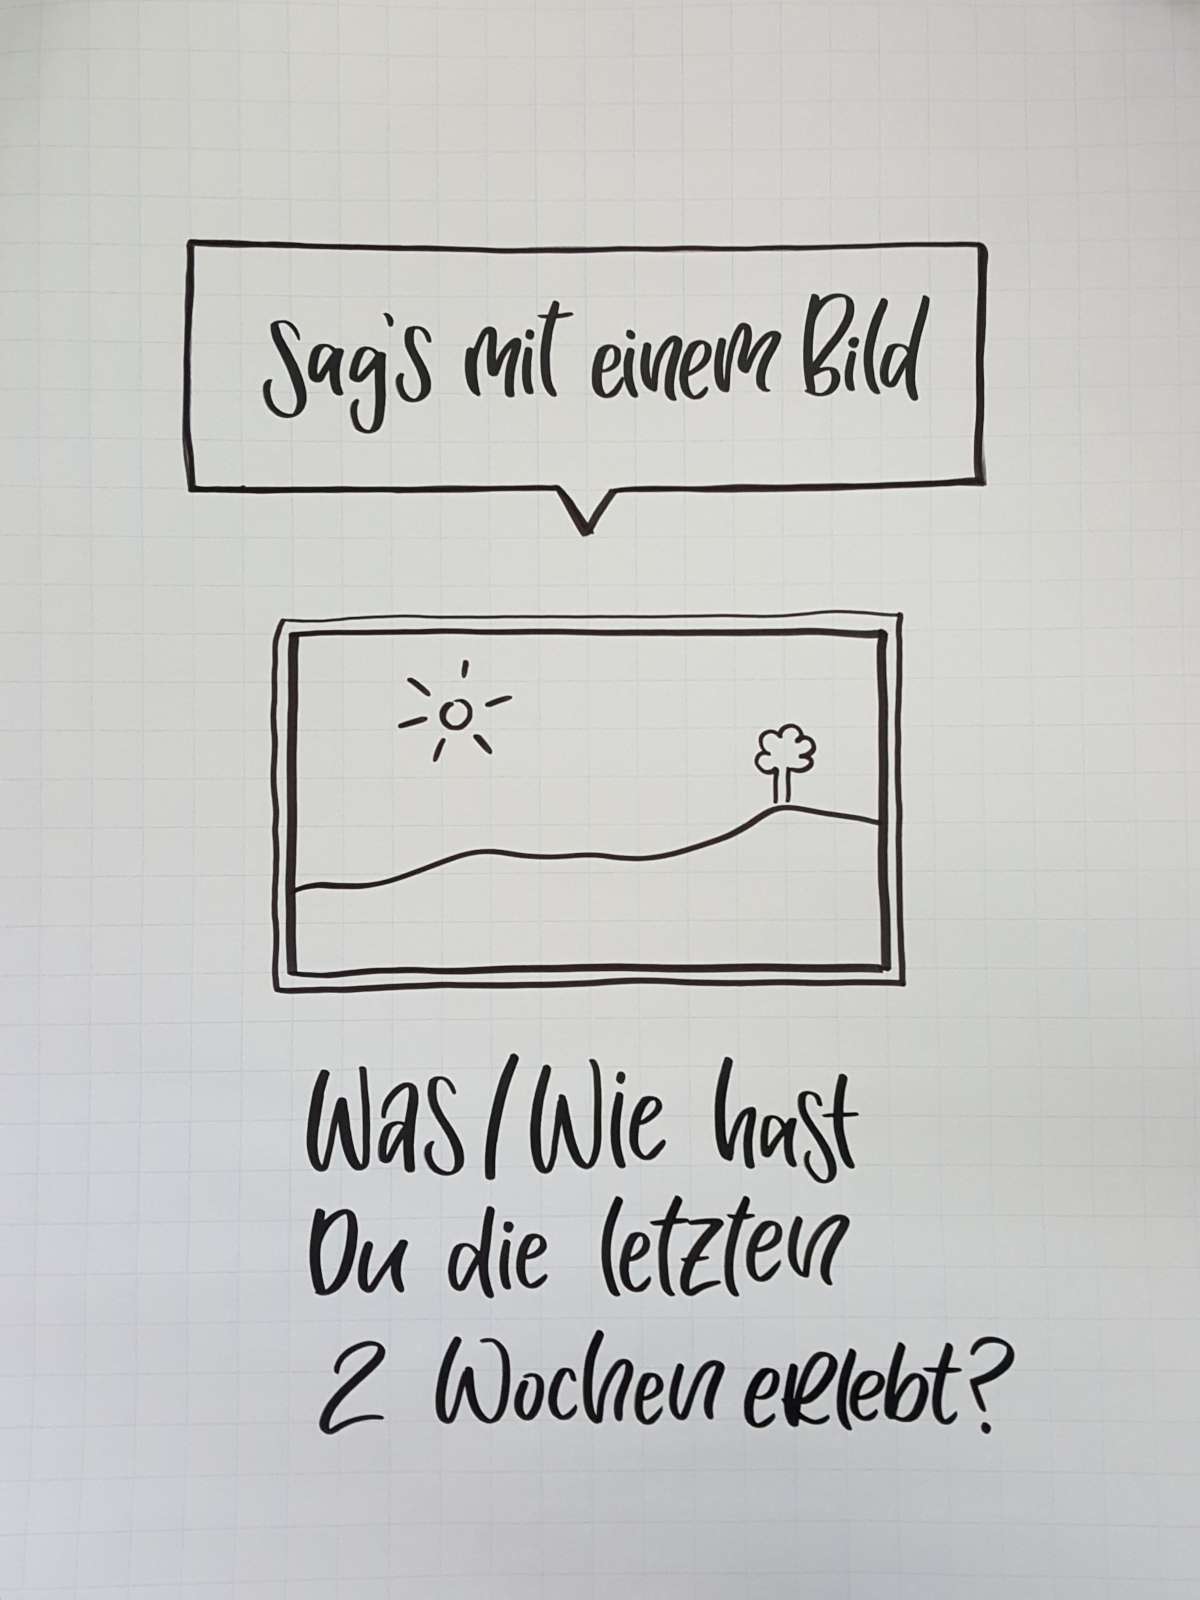 Sag's mit einem Bild
Was/Wie hast
Du die letzten
2 Wochen erlebt?